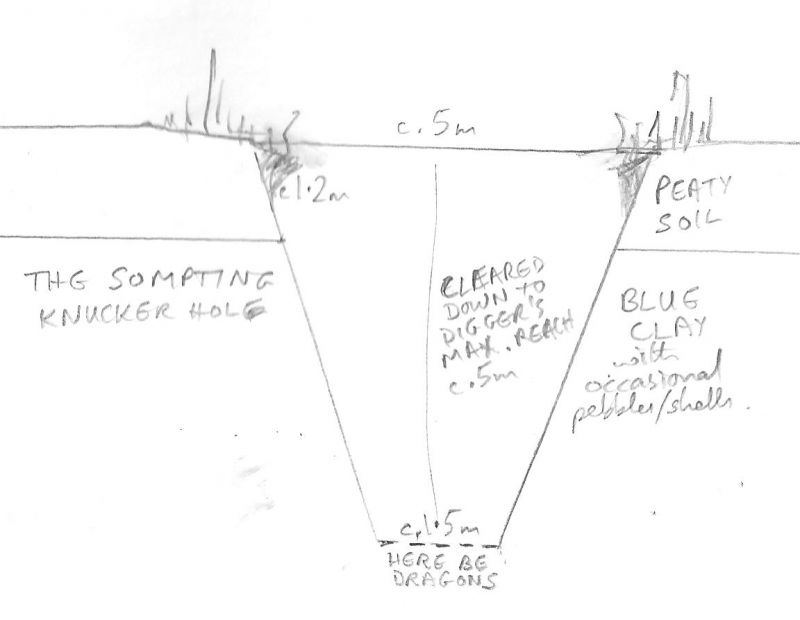 c. 5m
c1.2m
PEATY
SOIL
THE SOMPTING
KNUCKER HOLE
CLEARED
DOWN TO
DIGGER'S
MAX. REACH
c.5m
BLUE
CLAY
with
occasional
pebbles/shells.
c.1.5m
HERE BE
DRAGONS